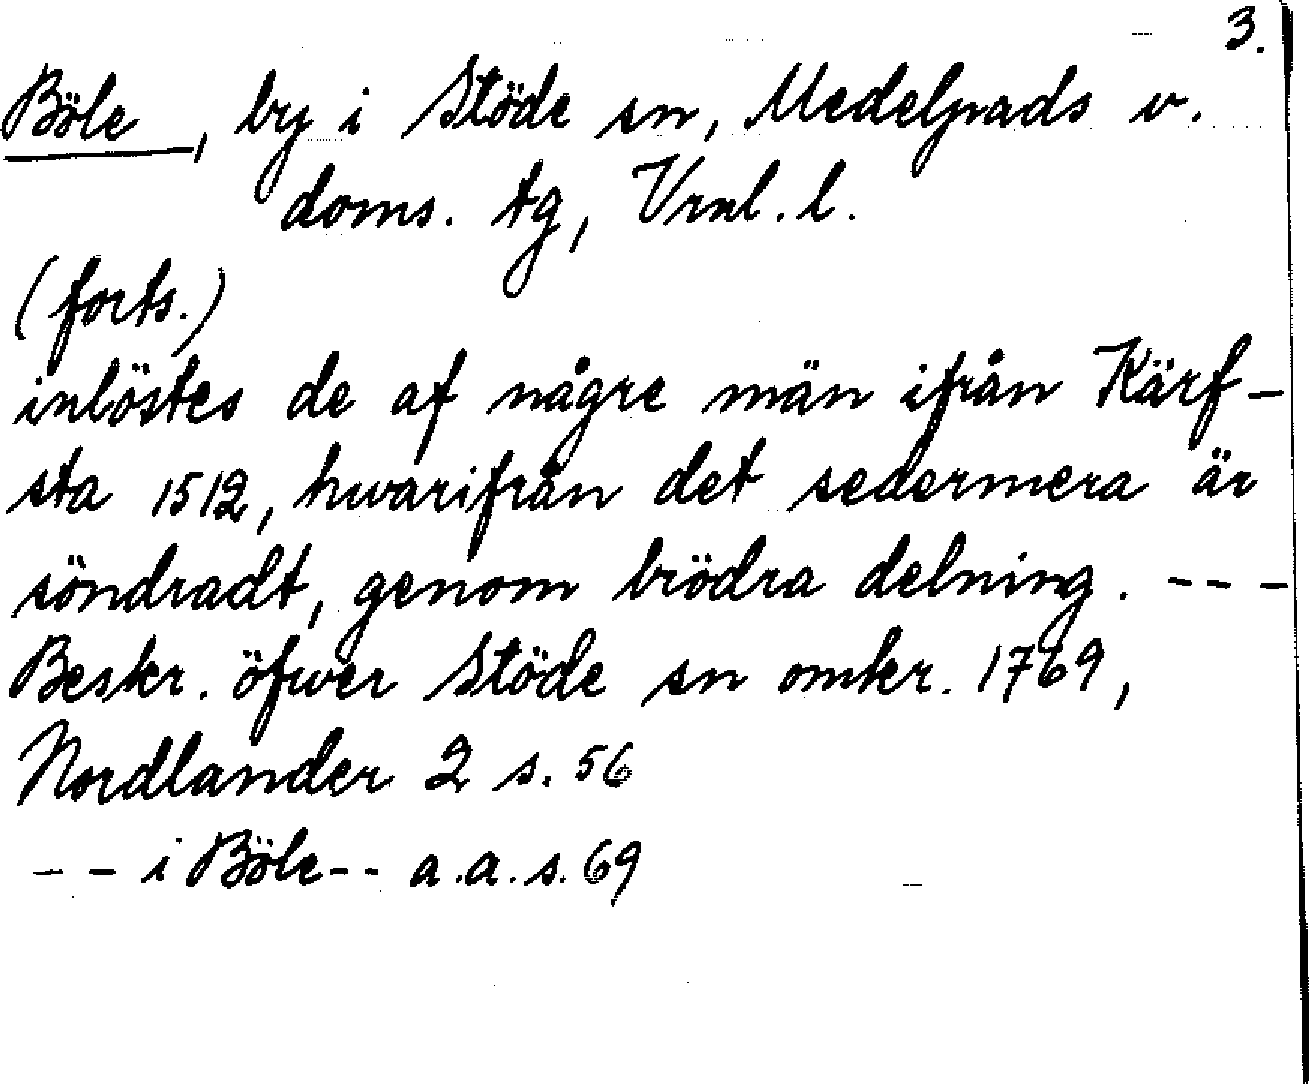 3.
Böle, by i Stöde sn, Medelpads v.
doms. tg, Vrnl. l.
(forts.)
inlöstes de af någre män ifrån Kärf-
sta 1512, hwarifrån det sedermera är
söndradt, genom brödra delning. ---
Beskr. öfwer Stöde sn omkr. 1769,
Nordlander 2 s. 56
-- i Böle -- a.a. s. 69